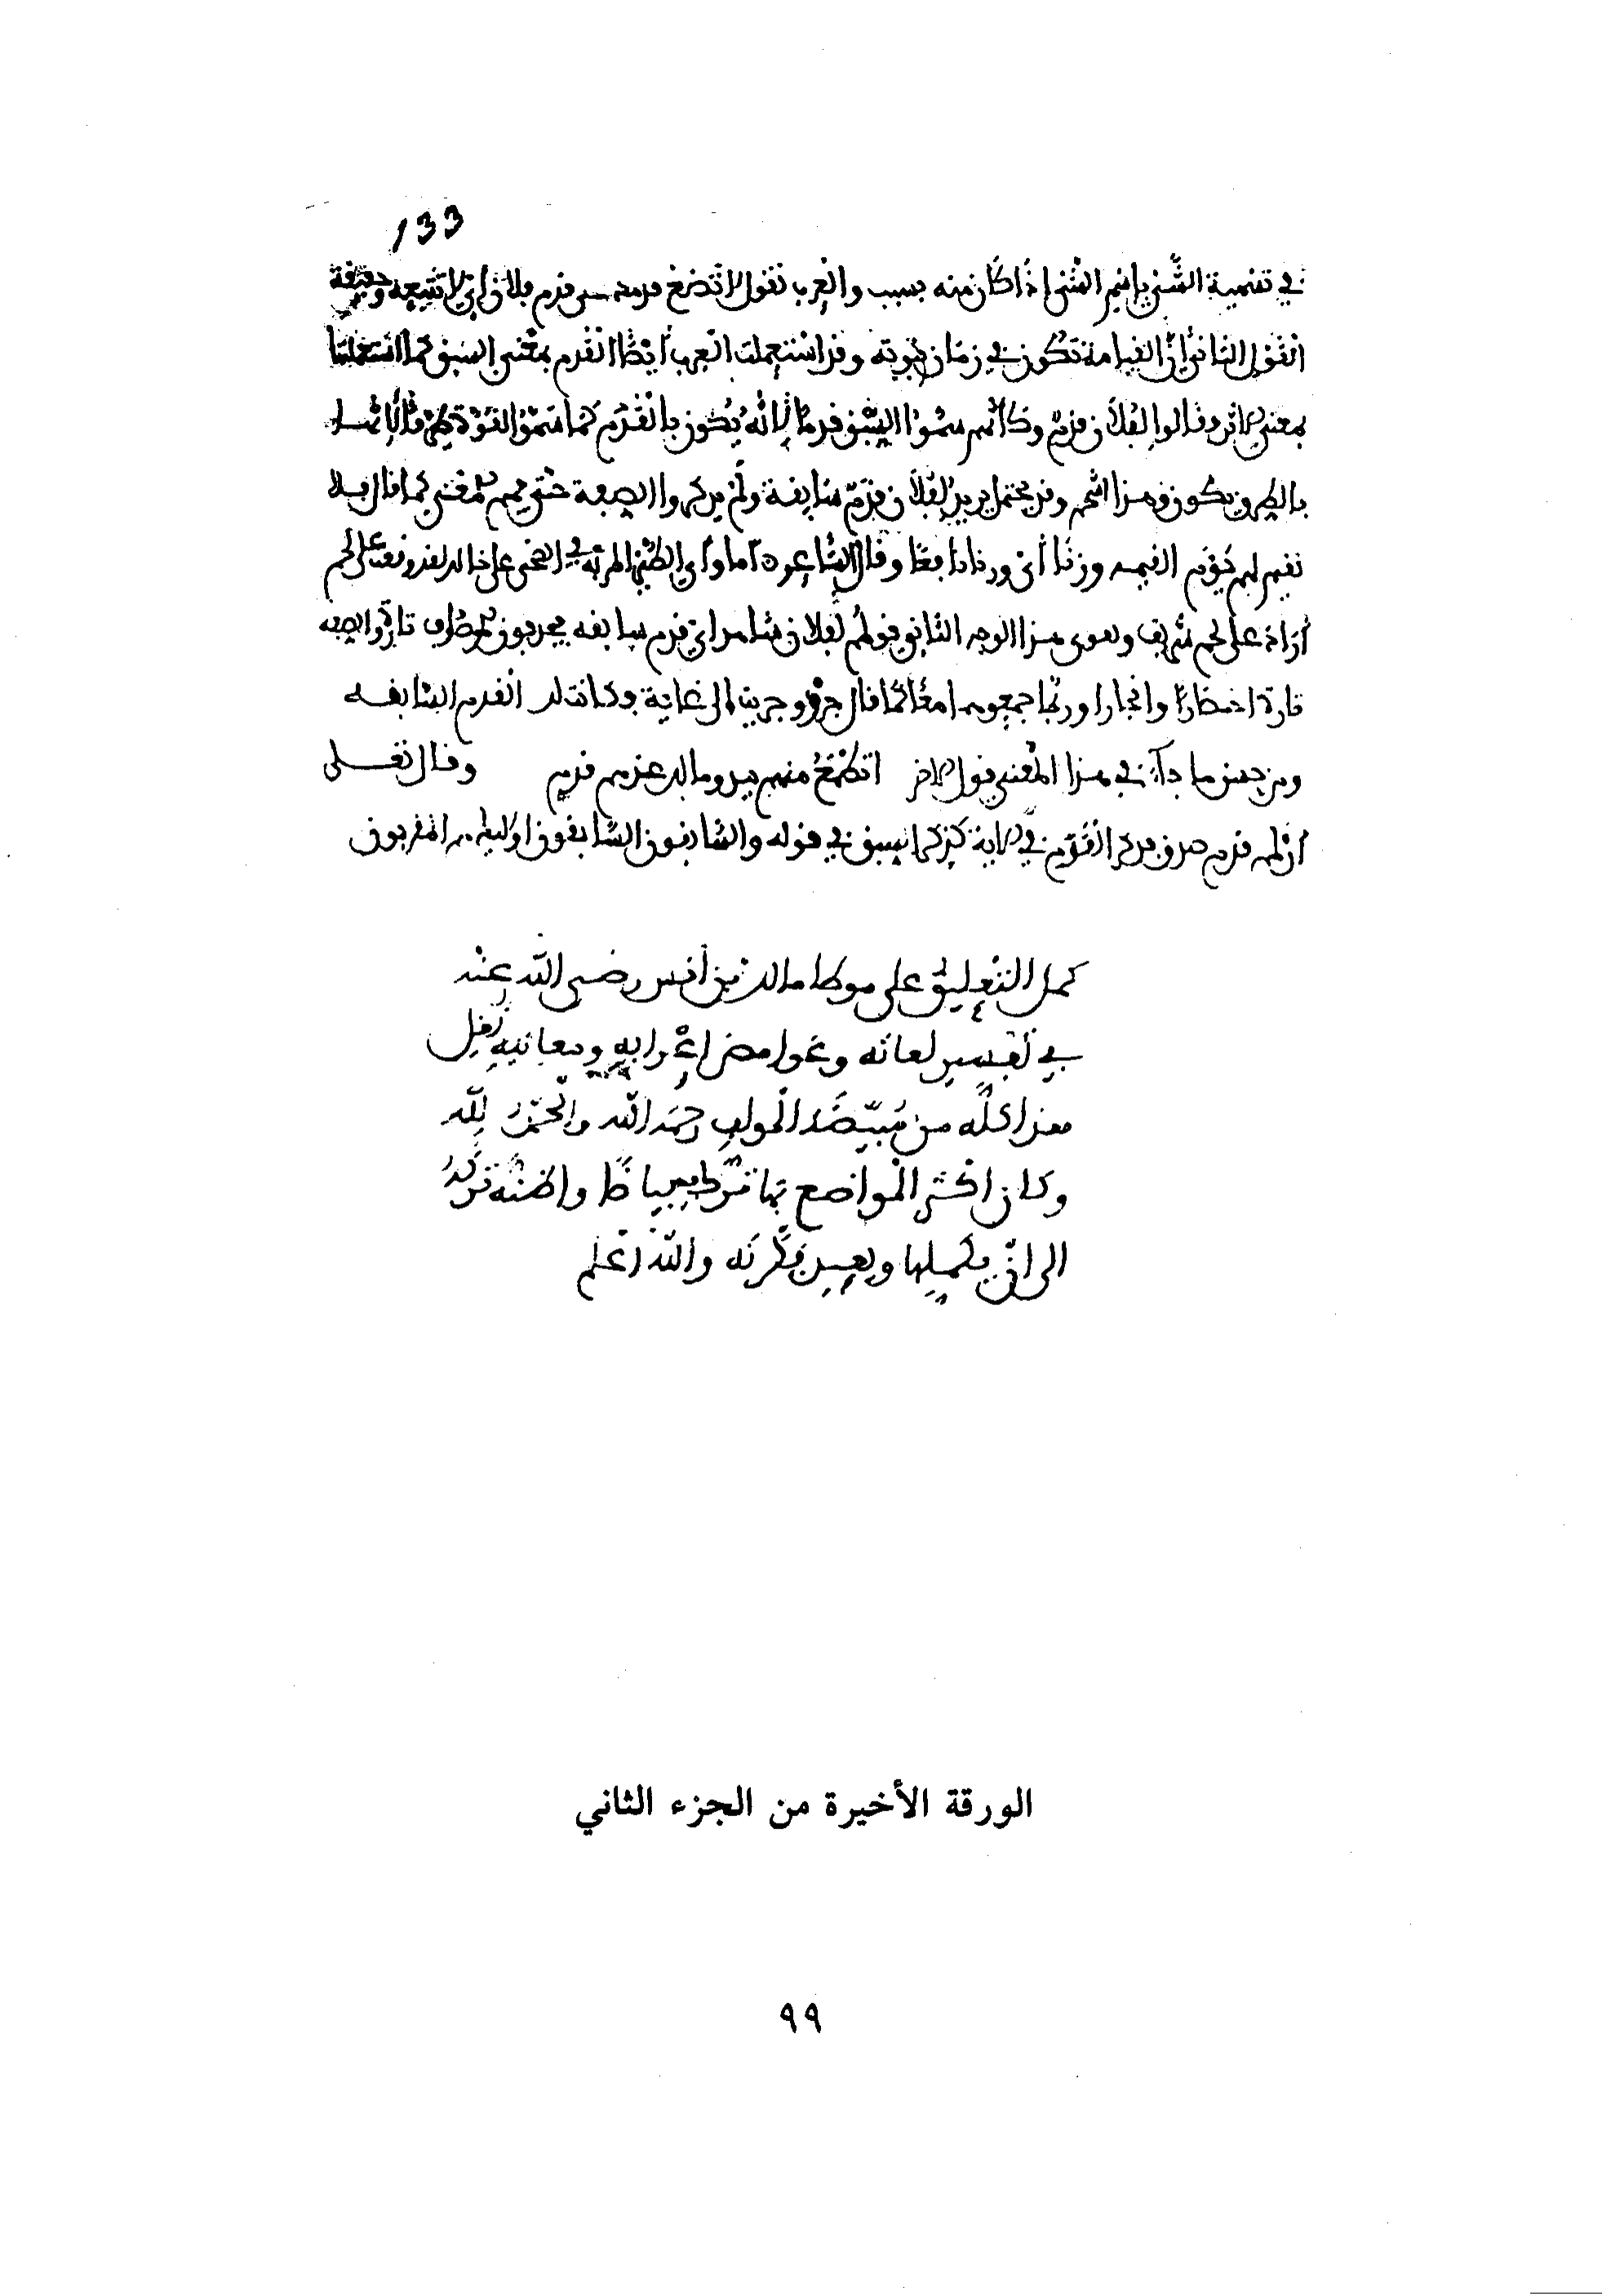 133
في تسمية الشيء باسم الشيء إذا كان منه بسبب والعرب تقول لا تضع قدمك على قدم فلان أي لا تتبعه وحقيقة
القول الثاني أن القيامة تكون في زمان نبوته وقد استعملت العرب أيضا القدم بمعنى السبق كما استعملتها
بمعنى الأثر وقالوا لفلان قدم وكأنهم سموا السبق قدما لأنه يكون بالقدم كما سموا القوة
يكون هذا اسم وقد يحتمل يريد لفلان قدم سابقة ولم يذكروا الصفة حتى المعنى كما قال فلا
نقيم لهم يوم القيمه وزنا أي وزنا نافعا وقال الشاعر أما وأبي الطير المربة في الضحى على خالد لقد وقعت على لحم
أراد على لحم شريف هذا الوجه الثاني قولهم لفلان أي قدم سابقه فيحذفون المضاف تارة والصفه
تارة اختصارا وربما جمعوهما معا كما قال جرو وجريت إلى غاية وكانت لك القدم السابقه
ومن حسن ما جاء في هذا المعنى قول الآخر اتطمع منهم قدم وقال تعلى
ان لهم قدم صدق فذكر القدم في الآية كذكر السبق في قوله والسابقون السابقون اوليك المقربون
كمل التعليق على موطا مالك بن أنس رضي الله عنه
في تفسير لغاته وغوامض إعرابه ومعانيه نقل
هذا كله من مبيضة المولف رحمه الله والحمد لله
وكان اكثر المواضع بها ترك بياضا واظنه تركه
الى ان يكملها ويعيد فكرته والله أعلم
الورقة الأخيرة من الجزء الثاني
٩٩